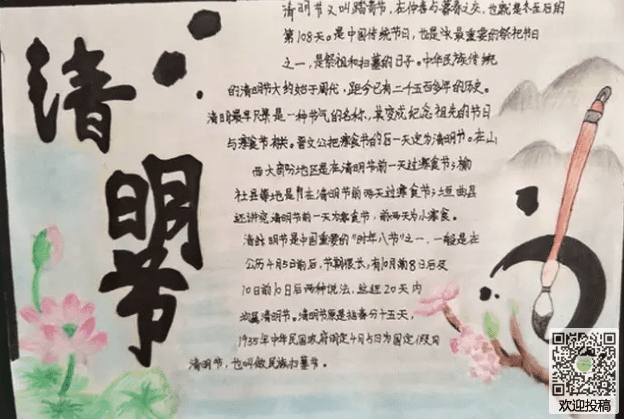 清明节
清明节又叫踏青节，在仲春与暮春之交，也就是冬至后的
第108天。是中国传统节日，也是最重要的祭祀节日
之一，是祭祖和扫墓的日子。中华民族传统
的清明节大约始于周代，距今已有二千五百多年的历史。
清明最早只是一种节气的名称，其变成纪念祖先的节日
与寒食节有关。晋文公把寒食节的后一天定为清明节。在山
西大部分地区是在清明节前一天过寒食节；榆
社县等地是在清明节前两天过寒食节；垣曲县
还讲究清明节前一天为寒食节，前两天为小寒食。
清明节是中国重要的“时年八节”之一，一般是在
公历4月5日前后，节期很长，有10日前8日后及
10日前10日后两种说法，这近20天内
均属清明节。清明节原是指春分十五天，
1935年中华民国政府明定4月5日为国定假日
清明节，也叫做民族扫墓节。
欢迎投稿